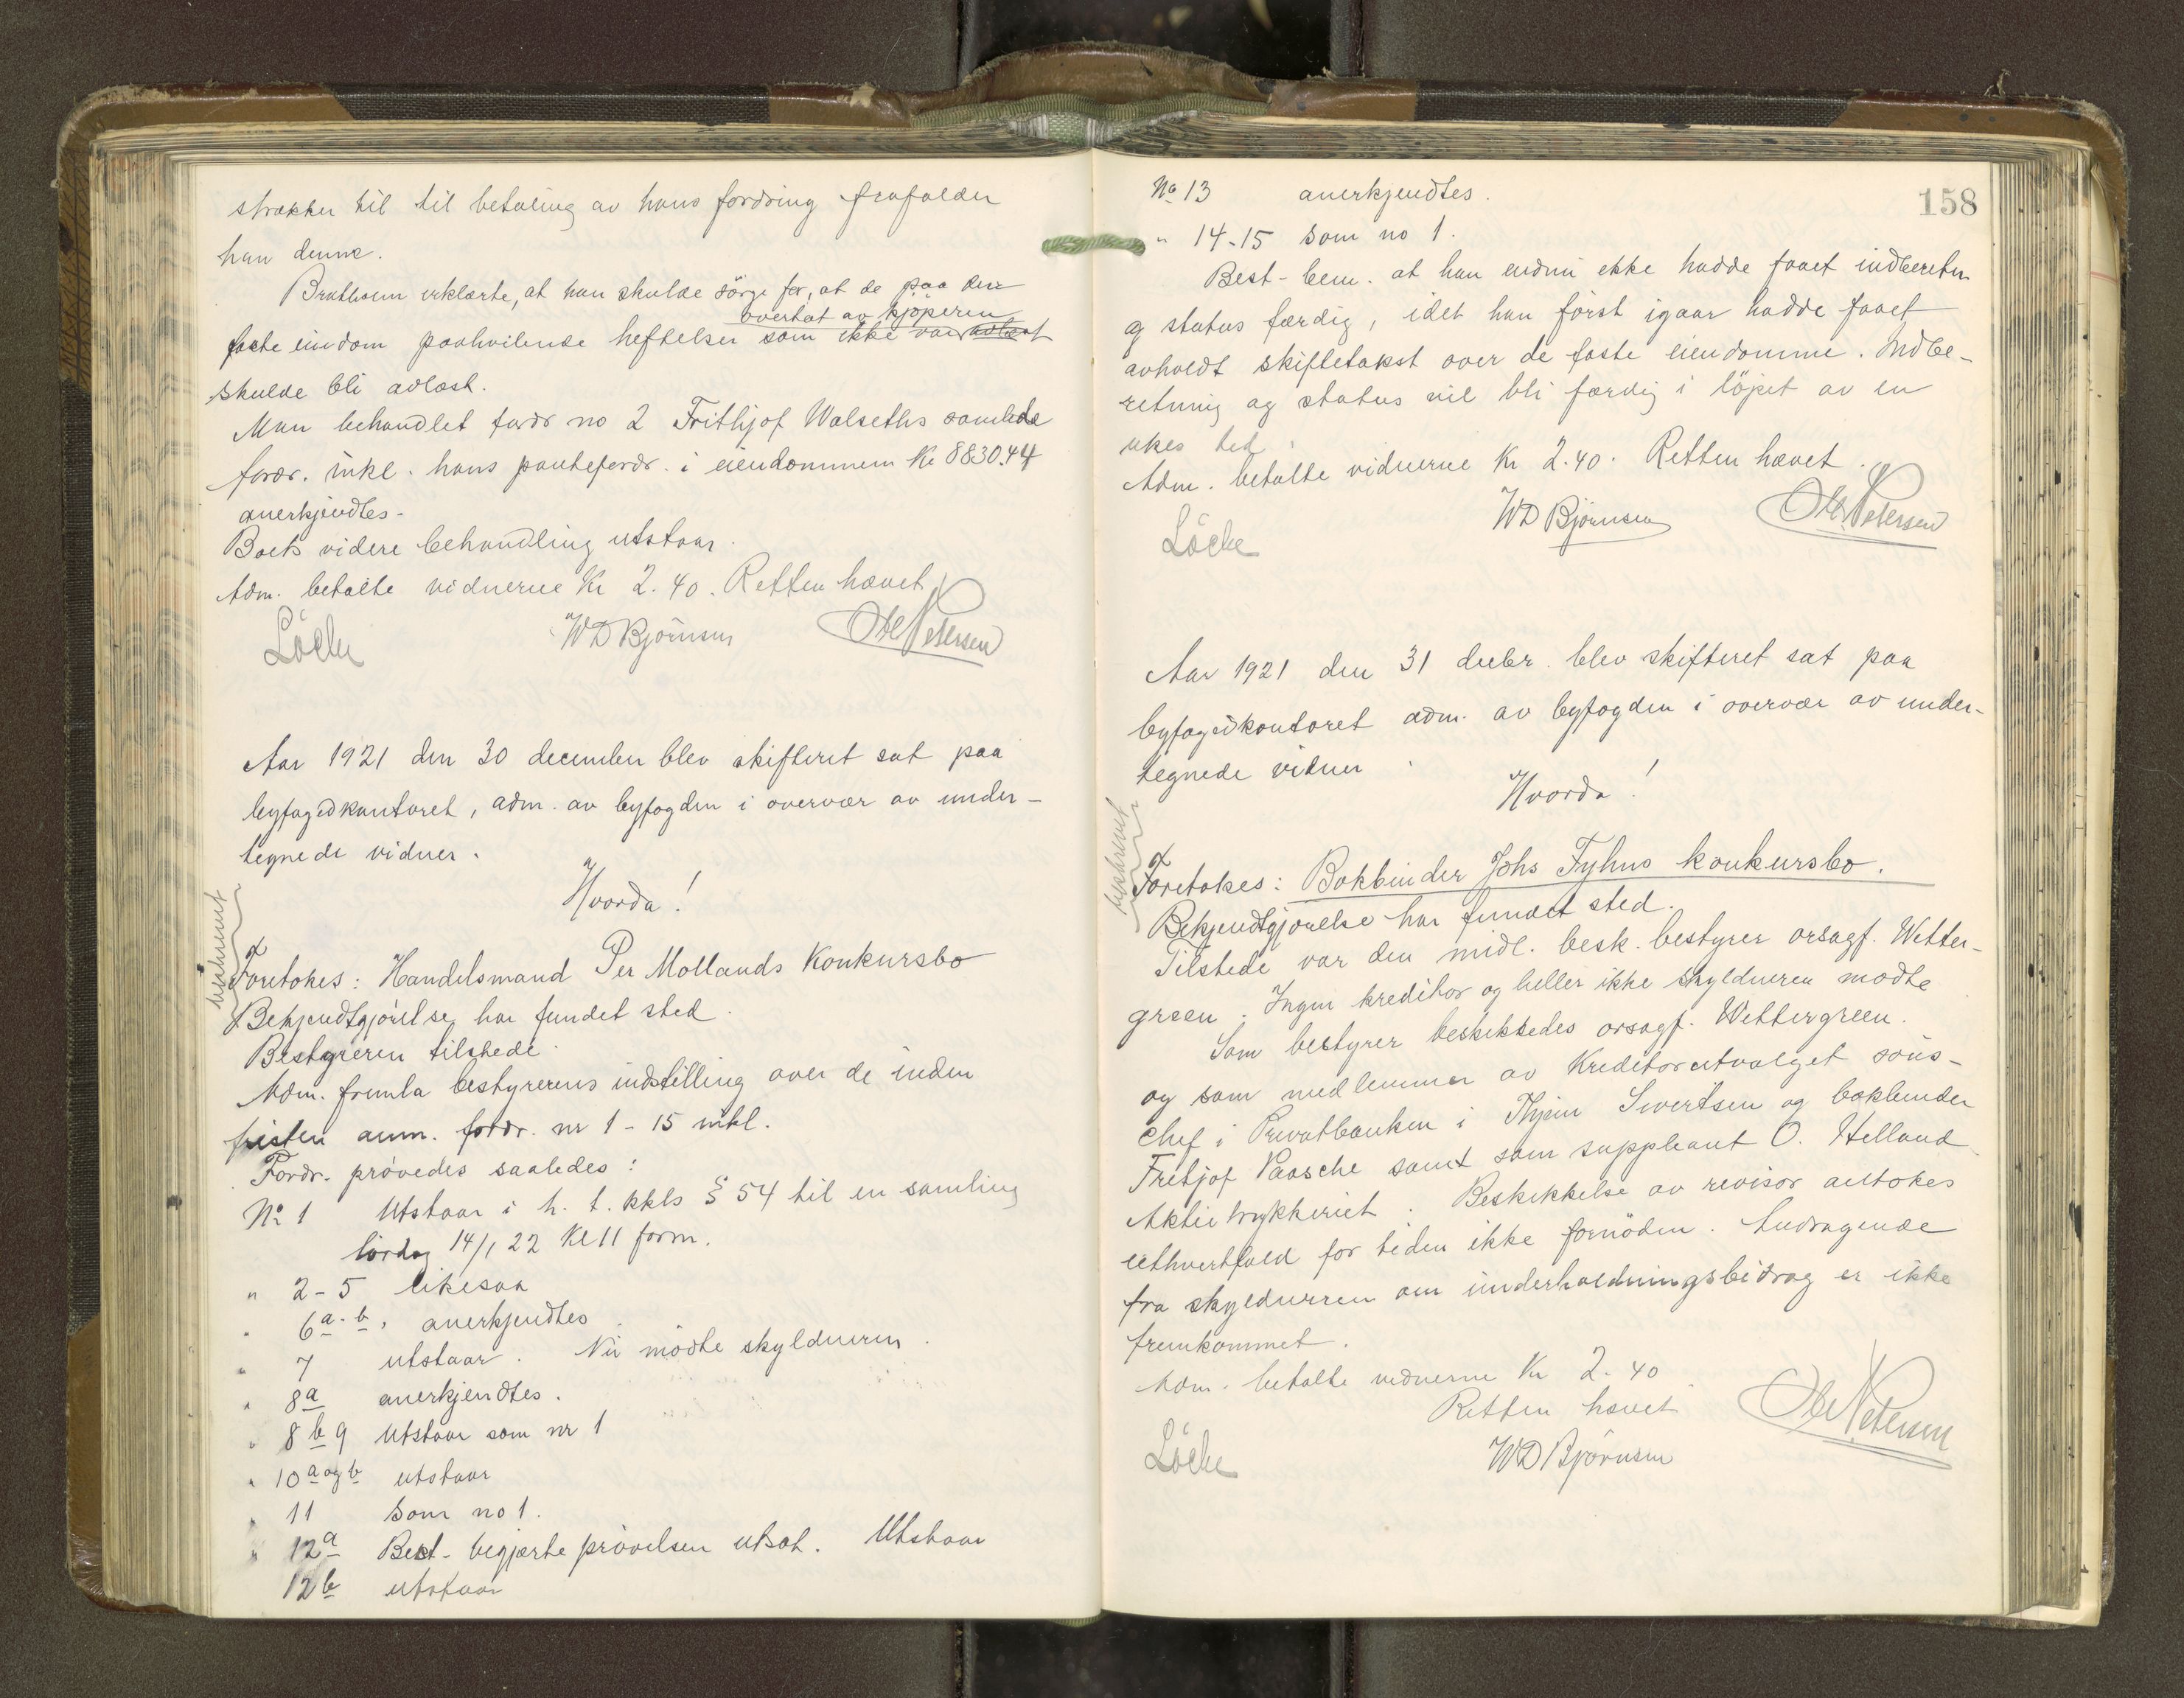 strækker til til betaling av hans fordring frafalder
han denne.
Bratholm erklærte, at han skulde sörge for, at de paa den
overtat av kjöperen
faste eiendom paahvilende heftelser som ikke var avlæst
skulde bli avlæst.
Man behandlet fordr no 2 Frithjof Walseths samlede
fordr. inkl. hans pantefordr. i eiendommen Kr 8830.44
anerkjendtes -
Boets videre behandling utstaar.
Adm. betalte vidnerne Kr 2.40. Retten hævet
Löcke WD Björnsen Ole Petersen
Aar 1921 den 30 december blev skifteret sat paa
byfogedkontoret, adm. av byfogden i overvær av under-
tegnede vidner.
Hvorda!
utskrevet
Foretokes: Handelsmand Per Mollands Konkursbo
Bekjendtgjörelse har fundet sted.
Bestyreren tilstede.
Adm. fremla bestyrerens indstilling over de inden
fristen anm. fordr. nr 1 - 15 inkl.
Fordr. prövedes saaledes:
No 1 Utstaar i h. t. kkls § 54 til en samling
lördag 14/1 22 Kl 11 form.
" 2 - 5 likesaa
" 6 a - b, anerkjendtes
" 7 utstaar. Nu mödte skyldneren.
" 8a anerkjendtes.
" 8 b 9 Utstaar som nr 1
" 10 a og b utstaar
" 11 Som no 1.
" 12a Best- begjærte prövelsen utsat. Utstaar
12 b utstaar
158
No 13 anerkjendtes.
" 14-15 som no 1.
Best- bem. at han endnu ikke hadde faaet indberetn.
og status færdig, idet han först igaar hadde faaet
avholdt skiftetakst over de faste eiendomme. Indbe-
retning og status vil bli færdig i löpet av en
ukes tid.
Adm. betalte vidnerne Kr 2.40. Retten hævet.
Löcke WD Björnsen Ole Petersen
Aar 1921 den 31 decbr. blev skifteret sat paa
byfogedkontoret adm. av byfogden i overvær av under-
tegnede vidner.
Hvorda!
utskrevet
Foretokes: Bokbinder Johs Tyhns konkursbo.
Bekjendtgjörelse har fundet sted.
Tilstede var den midl. besk. bestyrer orsagf. Wetter-
green. Ingen kreditor og heller ikke skyldneren mödte
Som bestyrer beskikkedes orsagf. Wettergreen.
og som medlemmer av Kreditorutvalget kons-
chef i Privatbanken i Thjem Sivertsen og bokbinder
Fritjof Paasche samt som suppleant O. Helland
Aktietrykkeriet. Beskikkelse av revisor antokes
iethvertfald for tiden ikke fornöden. Andragende
fra skyldneren om underholdningsbidrag er ikke
fremkommet.
Adm. betalte vidnerne Kr 2.40
Retten hævet
Löcke WD Björnsen Ole Petersen